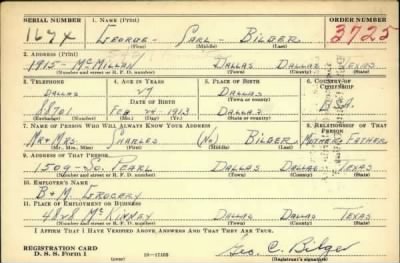 SERIAL NUMBER 1. NAME (Print) ORDER NUMBER
George - Carl - Bilger 3725
(First) (Middle) (Last)
2. ADDRESS (Print)
1915 - McMillan Dallas Dallas Texas
(Number and street or R. F. D. number) (Town) (County) (State)
3. TELEPHONE 4. AGE IN YEARS 5. PLACE OF BIRTH 6. COUNTRY OF CITIZENSHIP
Dallas 27 Dallas
(Town or county)
88701 DATE OF BIRTH
Feb 1913 Dallas U.S.A.
(Exchange) (Number) (Mo.) (Day) (Yr.) (State or country)
7. NAME OF PERSON WHO WILL ALWAYS KNOW YOUR ADDRESS 8. RELATIONSHIP OF THAT PERSON
Mr & Mrs. Charles (No) Bilger Mother & Father
(Mr., Mrs., Miss) (First) (Middle) (Last)
9. ADDRESS OF THAT PERSON
1509 - So. Pearl Dallas Dallas Texas
(Number and street or R. F. D. number) (Town) (County) (State)
10. EMPLOYER'S NAME
B & M Grocery
11. PLACE OF EMPLOYMENT OR BUSINESS
4828 McKinney Dallas Dallas Texas
(Number and street or R. F. D. number) (Town) (County) (State)
I AFFIRM THAT I HAVE VERIFIED ABOVE ANSWERS AND THAT THEY ARE TRUE.
REGISTRATION CARD
D. S. S. Form 1 Geo. C. Bilger
(Registrant's signature)